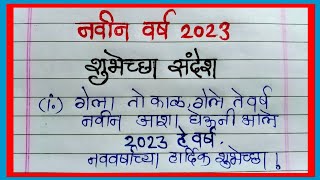 नवीन वर्ष 2023
शुभेच्छा संदेश
(1.) गेला तो काळ, गेले ते वर्ष
नवीन आशा घेऊनी आले
2023 हे वर्ष.
नववर्षाच्या हार्दिक शुभेच्छा !